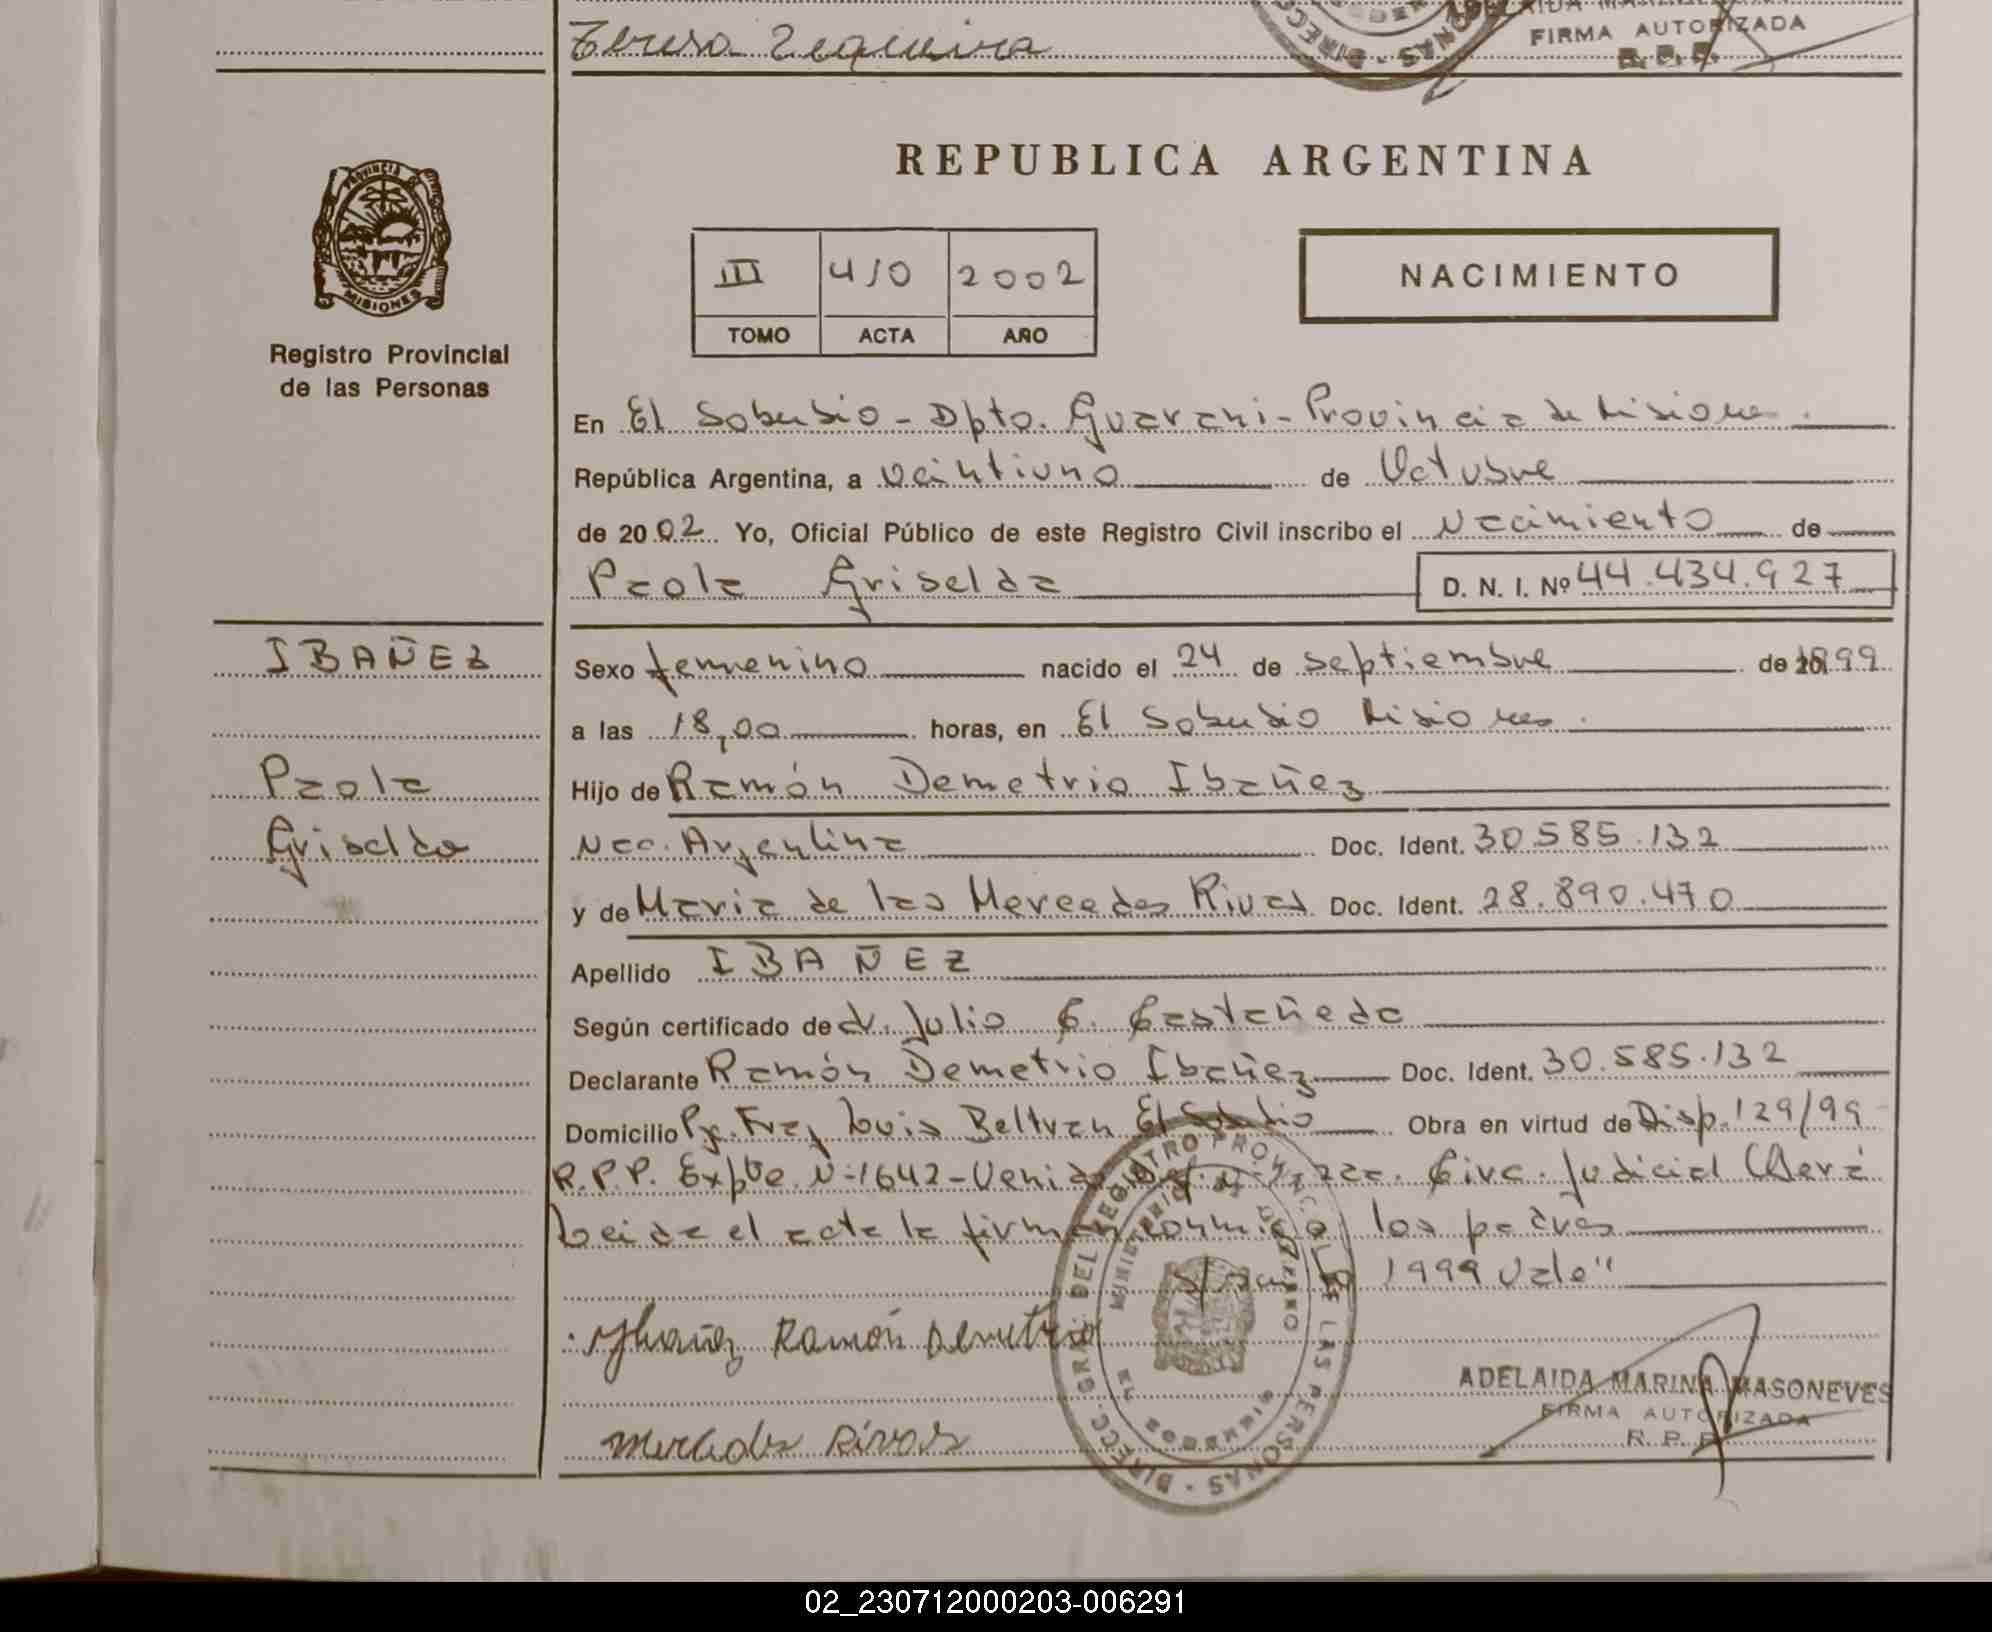 Teresa
FIRMA AUTORIZADA
R.P.P.
PROVINCIA DE
MISIONES
Registro Provincial
de las Personas
REPUBLICA ARGENTINA
III 410 2002
TOMO ACTA AÑO
NACIMIENTO
En El Soberbio - Dpto. Guarani - Provincia de Misiones.
República Argentina, a veintiuno de Octubre
de 2002 Yo, Oficial Público de este Registro Civil inscribo el Nacimiento de
Paola Griselda D. N. I. Nº 44.434.927
IBAÑEZ
Paola
Griselda
Sexo femenino nacido el 24 de septiembre de 1999
a las 18,00 horas, en El Soberbio Misiones.
Hijo de Ramón Demetrio Ibañez
Nac. Argentina Doc. Ident. 30.585.132
y de Maria de las Mercedes Rivas Doc. Ident. 28.890.470
Apellido IBAÑEZ
Según certificado de dr. Julio C. Castañeda
Declarante Ramón Demetrio Ibañez Doc. Ident. 30.585.132
Domicilio Pje. Fray Luis Beltran El Soberbio Obra en virtud de Disp. 129/99
R.P.P. Expte. Nº 1642 - 2da. Circ. Judicial Oberá
Leida el acta la firman conmigo los padres
1999 Vale"
Ibañez Ramón Demetrio
Mercedes Rivas
DIRECC. GRAL. DEL REGISTRO PROVINC. DE LAS PERSONAS
MINISTERIO DE GOBIERNO
MISIONES
ADELAIDA MARINA MASONEVES
FIRMA AUTORIZADA
R.P.P.
02_230712000203-006291